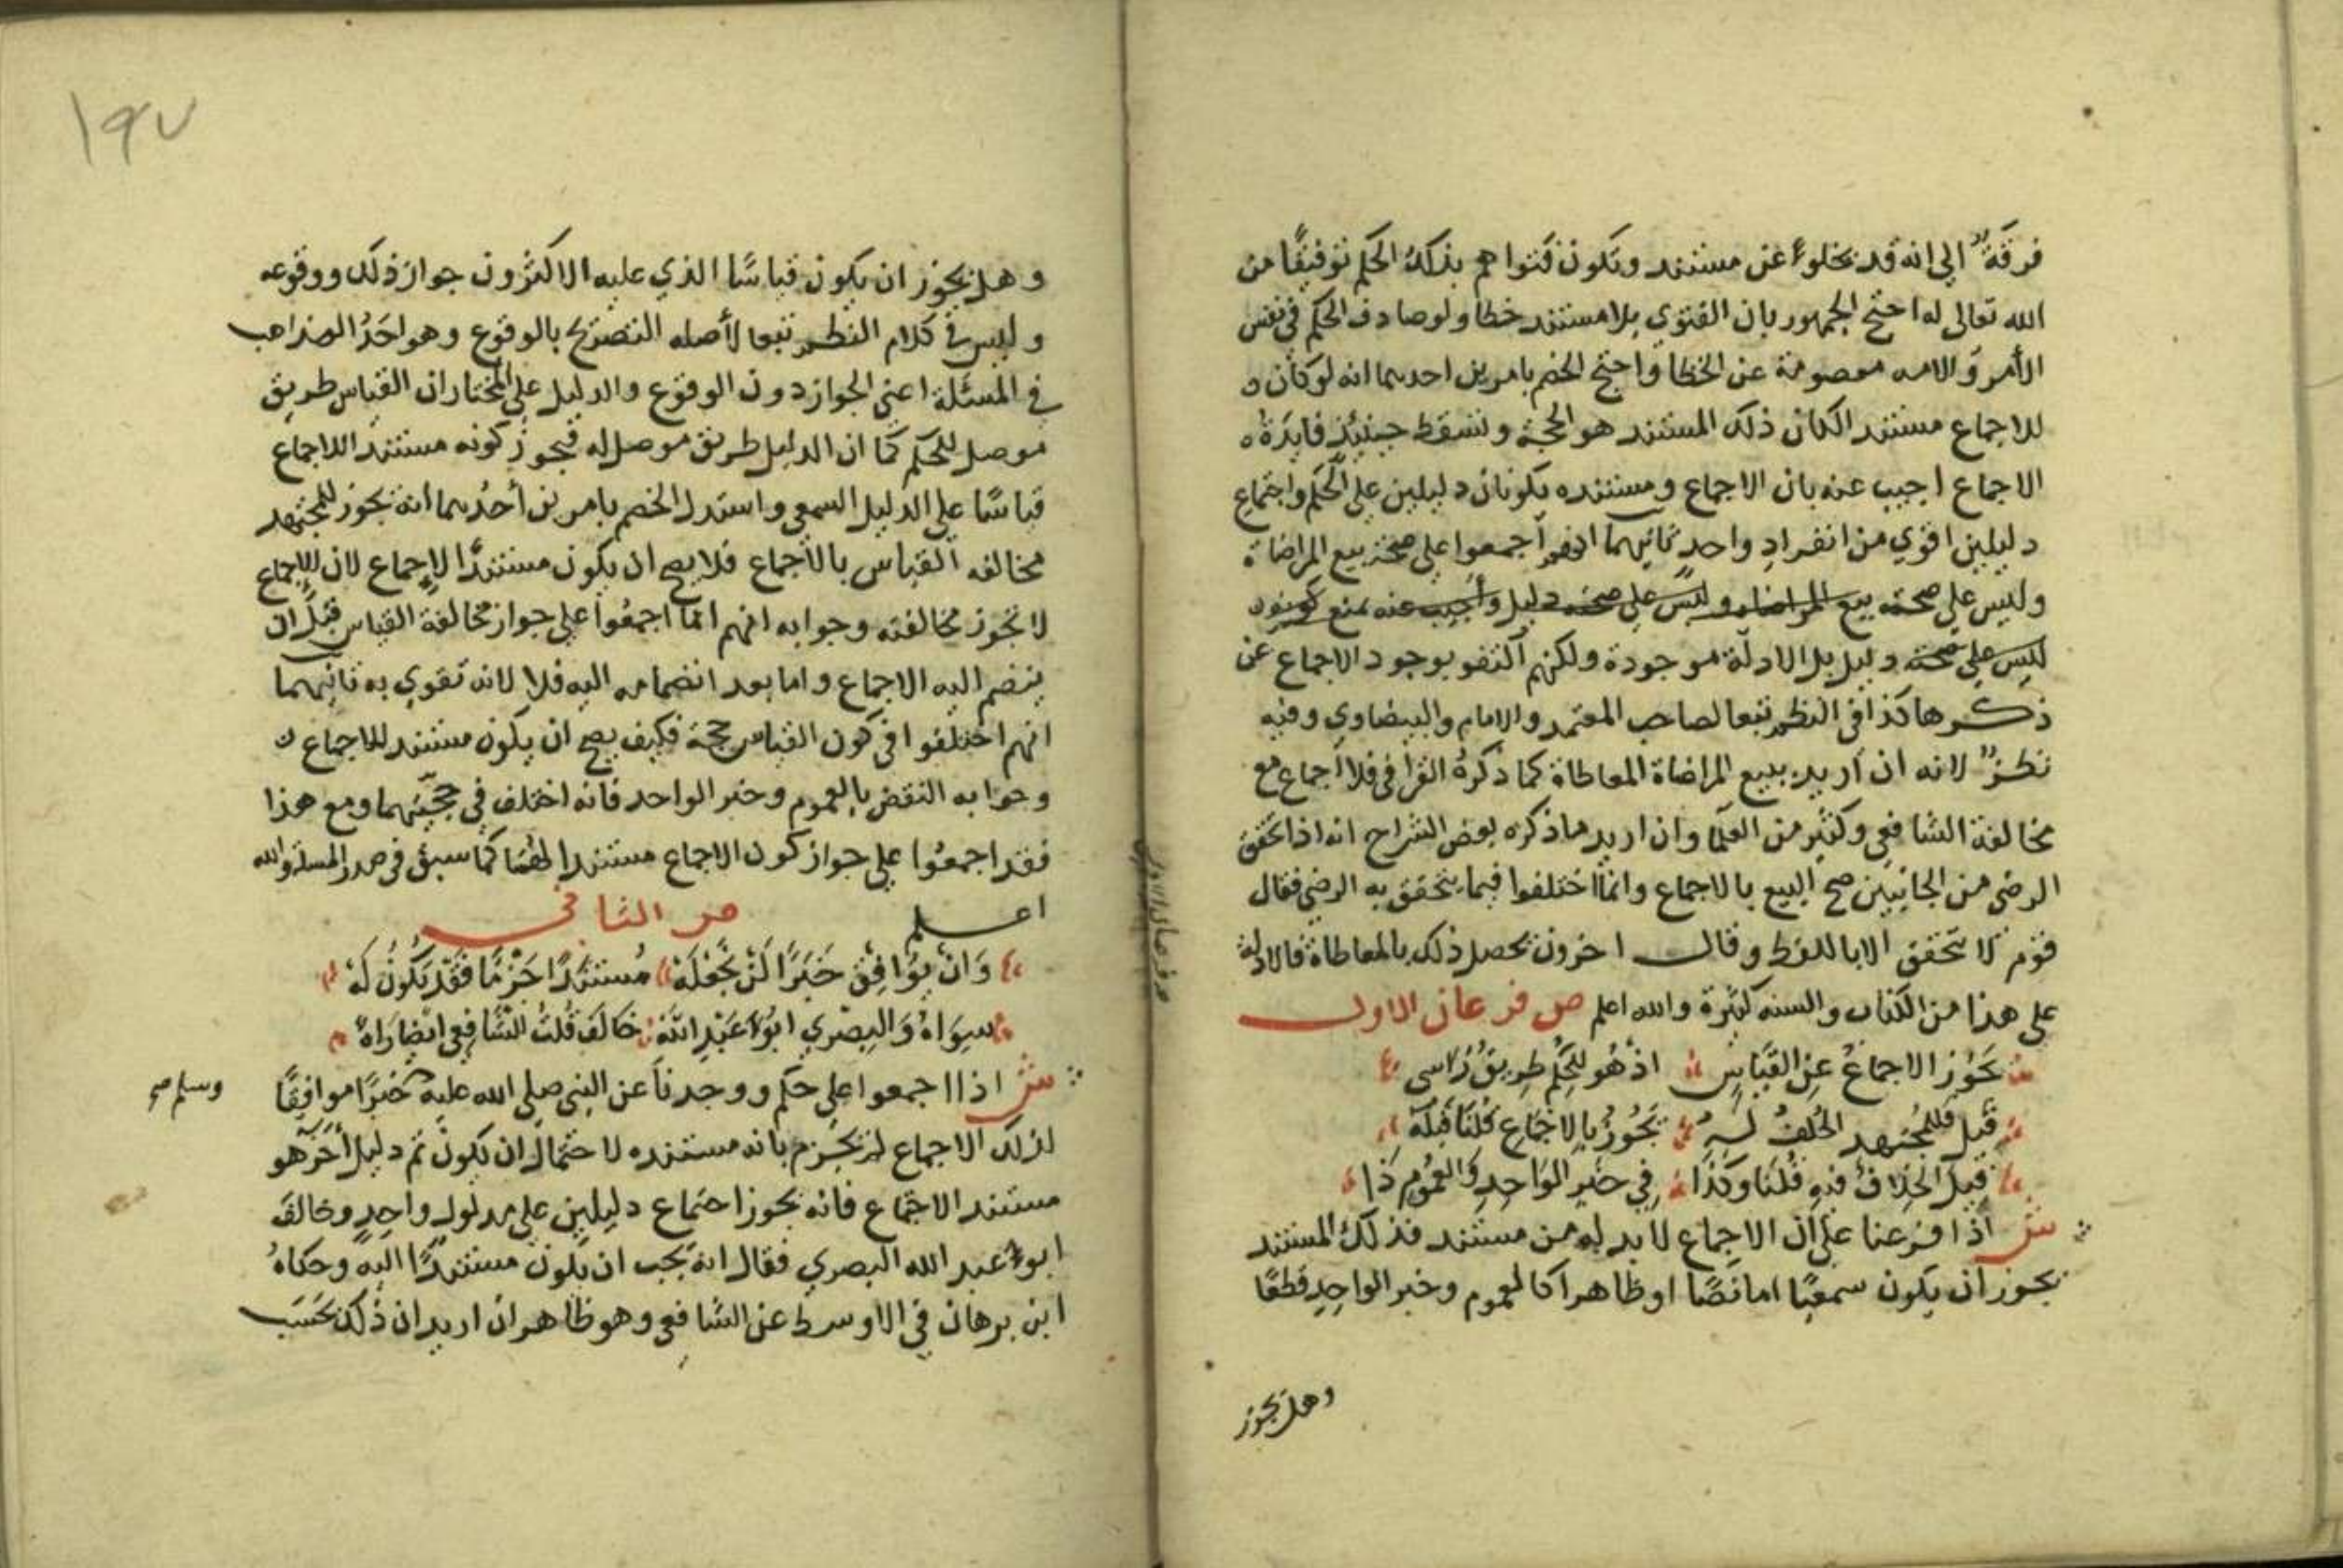 فرقة الى انه قد يخلوا عن مستند وتكون فتواهم بذلك الحكم توفيقًا من
الله تعالى له احتج الجمهور بان الفتوى بلا مستند خطا ولو صادف الحكم في نفس
الأمر والامه معصومة عن الخطا واحتج الخصم بامرين احدهما انه لو كان
للاجماع مستند الكان ذلك المستند هو الحجة وتسقط حينيذ فايدة
الاجماع اجيب عنه بان الاجماع ومستنده يكونان دليلين على الحكم واجتماع
دليلين اقوي من انفراد واحد ثانيهما انهم اجمعوا على صحة بيع المراضاة
وليس على صحته بيع المراضاه وليس على صحته دليل وأجيب عنه بمنع كونه
ليس على صحته دليل بل الادلة موجودة ولكنهم اكتفو بوجود الاجماع عن
ذكرها كذا في النظم تبعا لصاحب المعتمد والامام والبيضاوي وفيه
نظرٌ لانه ان اريد ببيع المراضاة المعاطاة كما ذكره القرافي فلا اجماع مع
مخالفة الشافعي وكثير من العلما وان اريد ما ذكره بعض الشراح انه اذا تحقق
الرضى من الجانبين صح البيع بالاجماع وانما اختلفوا فيما يتحقق به الرضى فقال
قوم لا يتحقق الا باللفظ وقال اخرون يحصل ذلك بالمعاطاة فالادلة
على هذا من الكتاب والسنه كثيرة والله اعلم ص فرعان الاول
يَجُوز الاجماعُ عن القياسِ اذ هُو للحكم طريقٌ راسى
قيل فللمجتهد الخلفُ لَهُ يَجُوزُ بالاجماعِ قُلنا قبلَهُ
قيل الخلافُ فيهِ قُلنا وكذا في خبرِ الواحدِ والعُمومِ ذا
ش اذا فرعنا على ان الاجماع لابد له من مستند فذلك المستند
يجوز ان يكون سمعيًا اما نصًا او ظاهرا كالعموم وخبر الواحد قطعًا
وهل يجوز
١٩٧
وهل يجوز ان يكون قياسًا الذي عليه الاكثرون جواز ذلك ووقوعه
وليس في كلام النظم تبعا لأصله التصريح بالوقوع وهو احَدُ المذاهب
في المسئلة اعني الجواز دون الوقوع والدليل على المختار ان القياس طريق
موصل للحكم كما ان الدليل طريق موصل له فيجوز كونه مستند اللاجماع
قياسًا على الدليل السمعي واستدل الخصم بامرين أحدُهما انه يجوز للمجتهد
مخالفه القياس بالاجماع فلا يصح ان يكون مستندًا لاجماع لان الاجماع
لا تجوز مخالفته وجوابه انهم انما اجمعُوا على جواز مخالفة القياس قبل ان
ينضم اليه الاجماع واما بعد انضمامه اليه فلا لانه تقوي به ثانيهما
انهم اختلفوا في كون القياس حجة فكيف يصح ان يكون مستند للاجماع
وجوابه النقض بالعموم وخبر الواحد فانه اختلف في حجيتهما ومع هذا
فقد اجمعُوا على جواز كون الاجماع مستندا لهما كما سبق في صدر المسلة والله
اعلم ص الثاني
وَان يُوافِق خَبَرًا لَن نَجْعلَهْ مُستندًا جَزْمًا فَقَد يَكُونُ لَهْ
سِوَاهُ وَالبِصْري ابُو عَبْدِ اللّه خَالَفَ قُلتُ الشَّافِعي ايْضًا رَاهُ
ش اذا اجمعوا على حكم ووجدنا عن النبي صلى الله عليه خبرًا موافقًا
وسلم صح
لذلك الاجماع لم نجزم بانه مستنده لاحتمال ان يكون ثم دليل أخر هو
مستند الاجماع فانه يجوز اجتماع دليلين على مدلول واحدٍ وخالفَ
ابو عبد الله البصري فقال انه يجب ان يكون مستندًا اليه وحكاهُ
ابن برهان في الاوسط عن الشافعي وهو ظاهر ان اريد ان ذلك بحَسَب